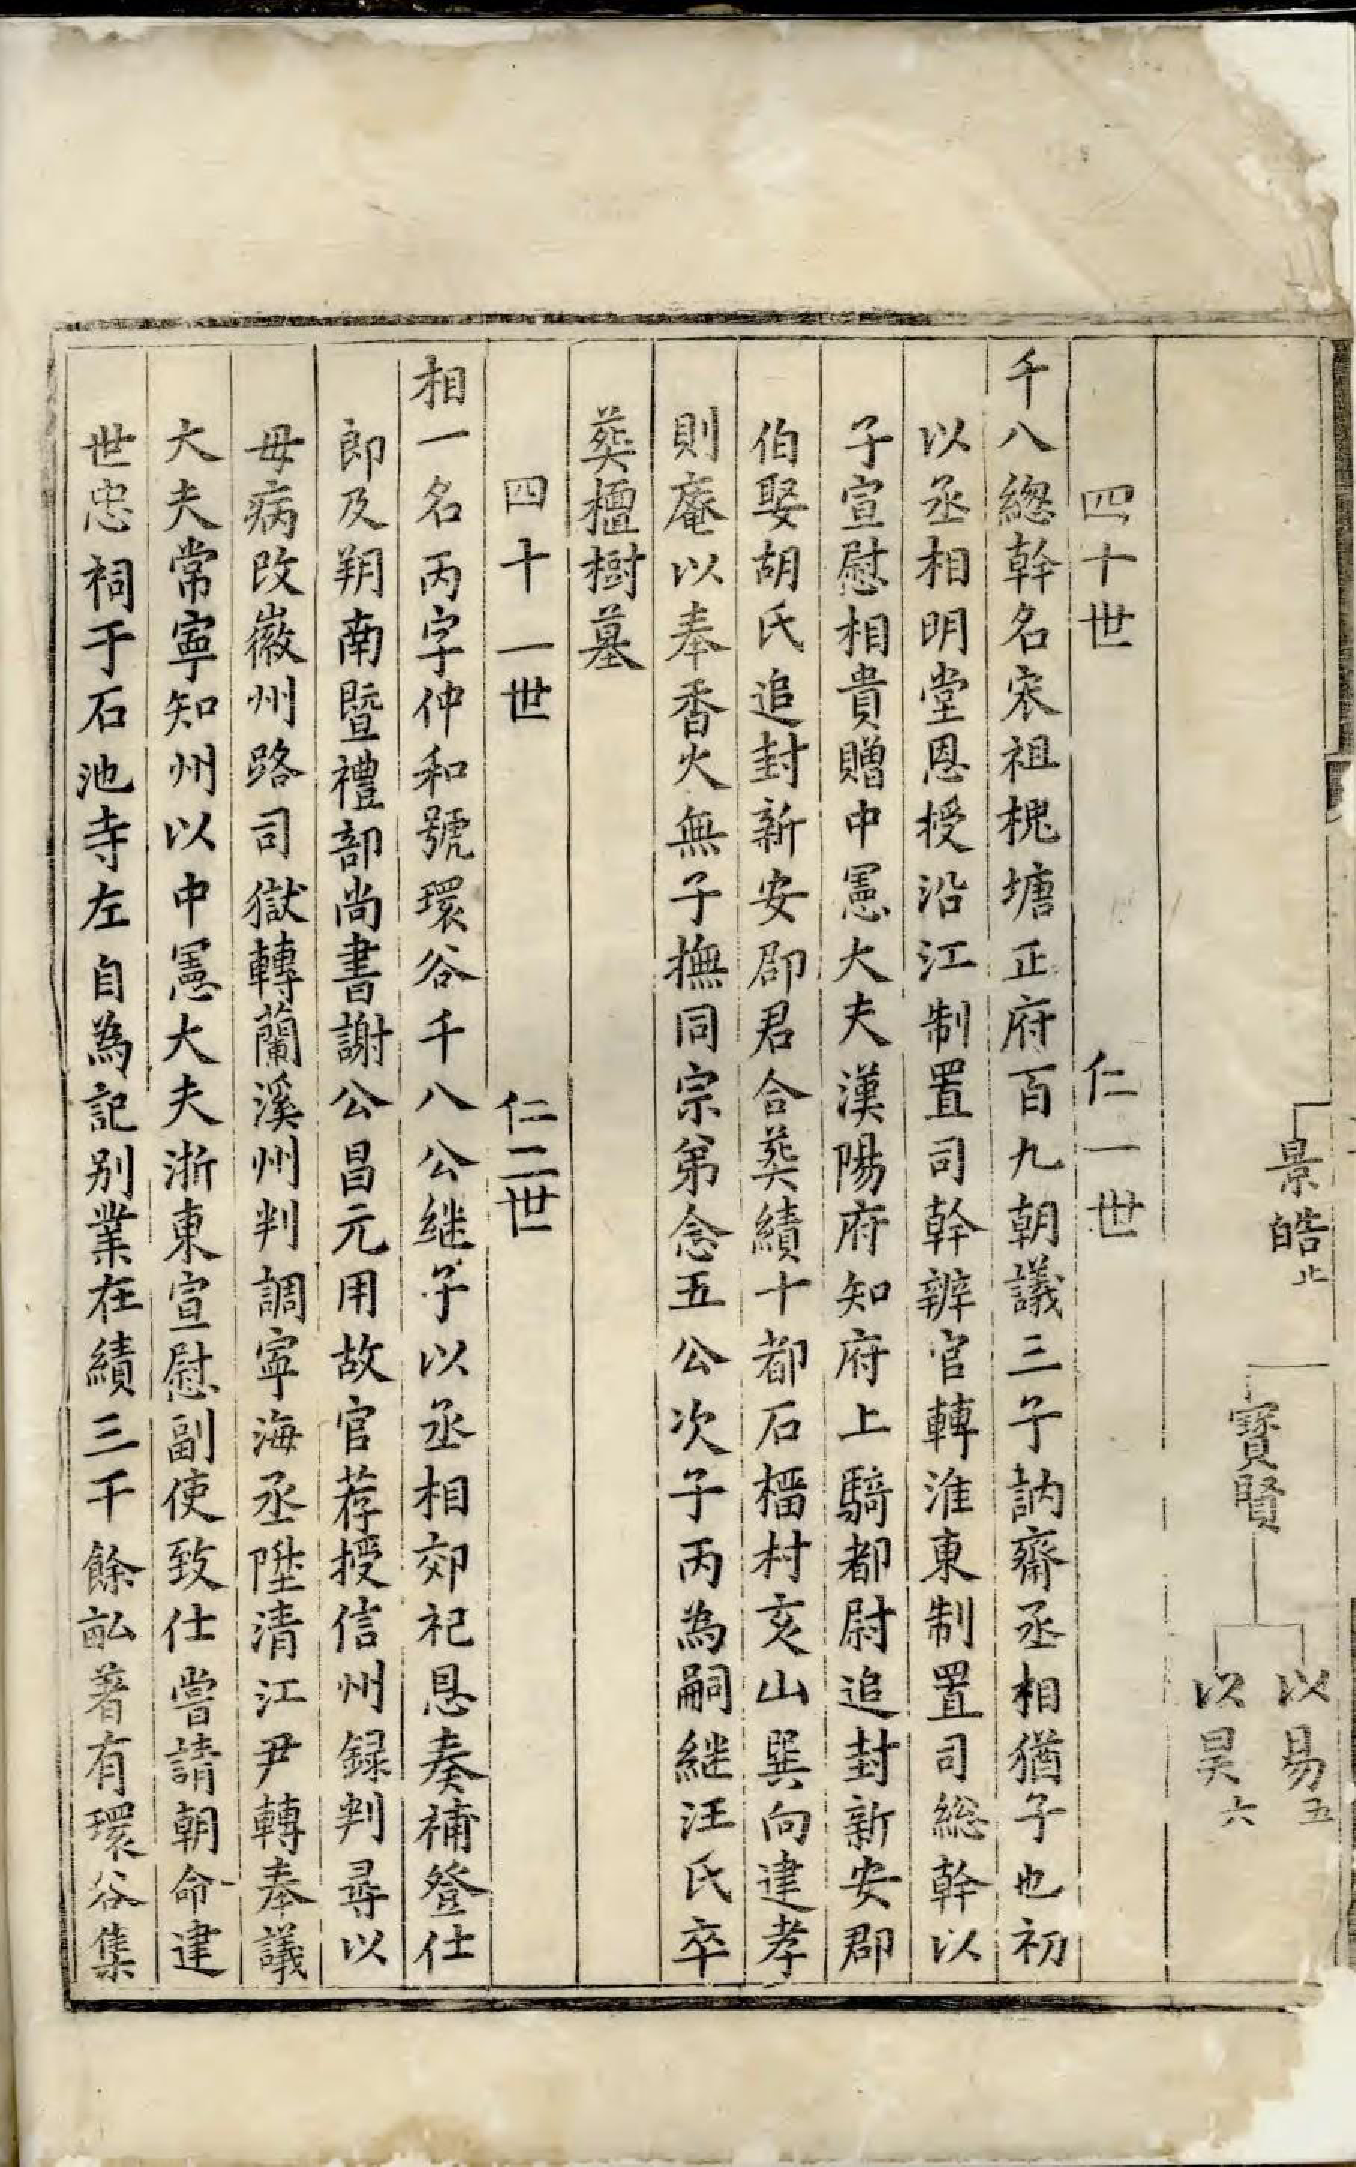 景皓北
寶賢
以易五
以昊六
四十世 仁一世
千八總幹名宋祖槐塘正府百九朝議三子訥齋丞相猶子也初
以丞相明堂恩授沿江制置司幹辨官轉淮東制置司総幹以
子宣慰相貴贈中憲大夫漢陽府知府上騎都尉追封新安郡
伯娶胡氏追封新安郡君合葬績十都石榴村亥山巽向建孝
則庵以奉香火無子撫同宗第念五公次子丙為嗣継汪氏卒
葬橿樹墓
四十一世 仁二世
相一名丙字仲和號環谷千八公継子以丞相郊祀恩奏補登仕
郎及朔南暨禮部尚書謝公昌元用故官荐授信州録判尋以
母病改徽州路司獄轉蘭溪州判調寧海丞陞清江尹轉奉議
大夫常寧知州以中憲大夫浙東宣慰副使致仕嘗請朝命建
世忠祠于石池寺左自為記别業在績三千餘畆著有環谷集